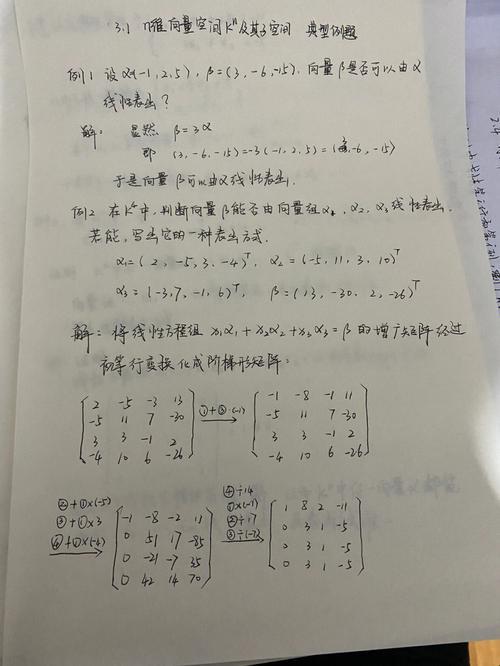 3.1 n维向量空间Kⁿ及其子空间 典型例题
例1 设α=(-1,2,5), β=(3,-6,-15). 向量β是否可以由α
线性表出?
解: 显然 β=3α
即 (3,-6,-15)=-3(-1,2,5)=(3,-6,-15)
于是向量β可以由α线性表出.
例2 在K⁴中,判断向量β能否由向量组α₁,α₂,α₃线性表出.
若能,写出它的一种表出方式.
α₁=(2,-5,3,-4)ᵀ, α₂=(-5,11,3,10)ᵀ
α₃=(-3,7,-1,6)ᵀ, β=(13,-30,2,-26)ᵀ
解: 将线性方程组 x₁α₁+x₂α₂+x₃α₃=β的增广矩阵经过
初等行变换化成阶梯形矩阵:
2 -5 -3 13 -1 -8 -1 11
-5 11 7 -30 ①+③·(-1) -5 11 7 -30
3 3 -1 2 3 3 -1 2
-4 10 6 -26 -4 10 6 -26
④÷14
②+①×(-5) ①×(-1)
③+①×3 -1 -8 -2 11 ②÷17 1 8 2 -11
④+①×(-4) 0 51 17 -85 ③÷(-7) 0 3 1 -5
0 -21 -7 35 0 3 1 -5
0 42 14 70 0 3 1 -5